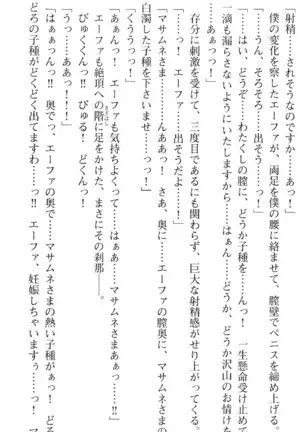 射精……されそうなのですか、あっ！
僕の変化を察したエーファが、両足を僕の腰に絡ませて、膣壁でペニスを締め上げる。
「……うん、そろそろ……出そう……っ！」
「……はい、どうぞ……わたくしの膣に、どうか子種を……んっ！　一生懸命受け止めて
一滴も漏らさないようにいたしますから……はぁん……どうか、どうか沢山のお情けを
……あぁっ！」
「……っ！　エーファ……出そうだよ……っ！」
存分に刺激を受けて、三度目であるにも関わらず、巨大な射精感がせり上がってくる。
「マサムネさま……んああっ！　さあ、奥に……エーファの膣奥に、マサムネさまの
白濁した子種を下さいませ……っっ！」
「くううっっ！」
「あぁんっ！　エーファも気持ちよくって……はぁあ……マサムネさまあぁっ……!!」
エーファも絶頂への階に足をかけた、まさにその刹那――。
びゅくんっ！　びゅる！　どくんっ！
「うっ……ああっ！！！」
「はぁっんっ!!　奥でっ、エーファの奥で……マサムネさまの熱い子種がぁっ！　ど
どろの子種がどくどく出てますわ……っ!!　エーファ、妊娠しちゃいますぅ……っ！　マ